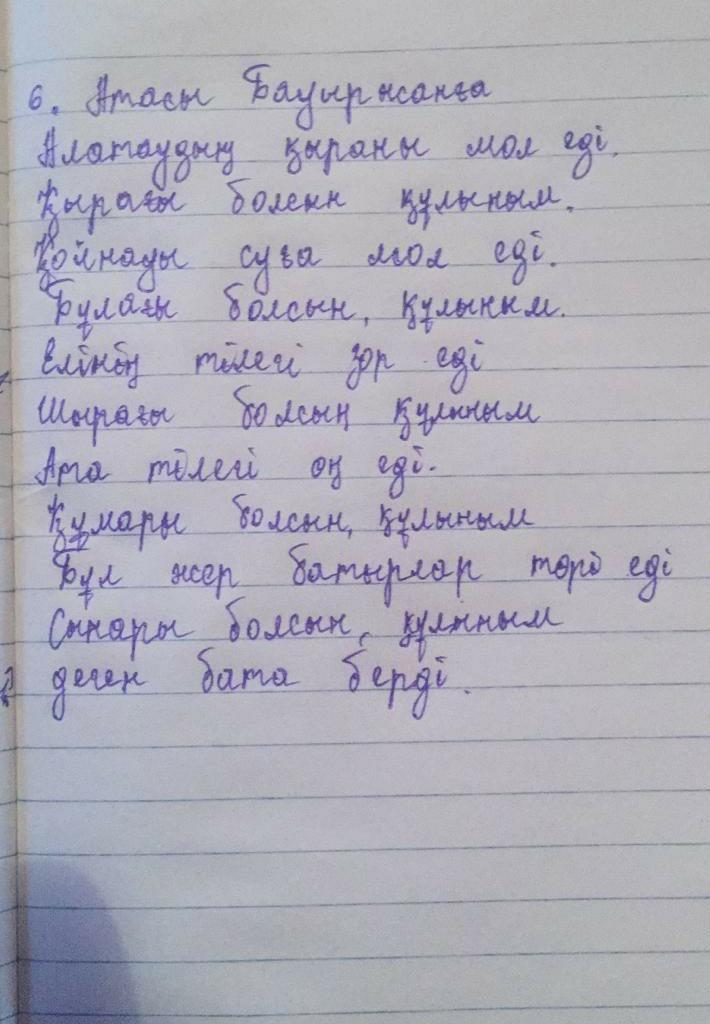 6. Атасы Бауыржанға
Алатаудың қыраны мол еді.
Қырағы болсын құлыным.
Қойнауы суға мол еді.
Бұлағы болсын, құлыным.
Елінің тілегі зор еді
Шырағы болсың құлыным
Ата тілегі оң еді.
Құмары болсын, құлыным
Бұл жер батырлар төрі еді
Сыңары болсын, құлыным
деген бата берді.